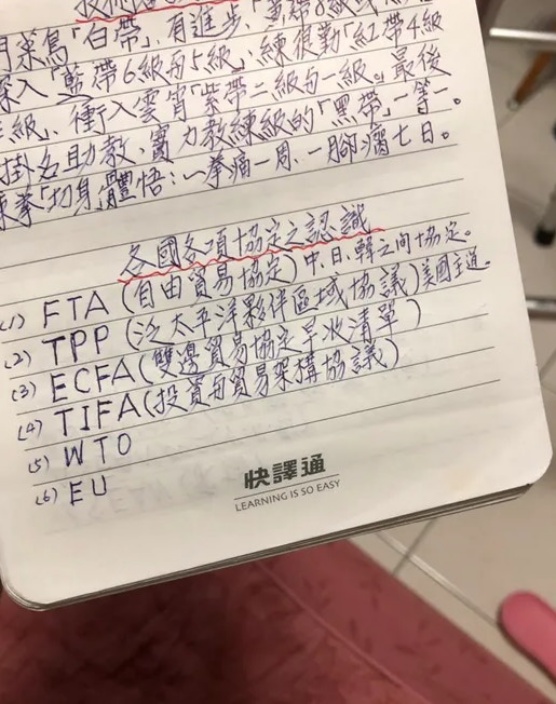 門菜鳥「白帶」、有進步、「黃帶8級或
深入「藍帶6級向5級」、練很勤「紅帶4級
級」、衝入雲宵「紫帶二級向一級」。最後
掛名助教、實力教練級的「黑帶」一等一。
拳「切身」體悟:一拳痛一周、一腳痛七日。
各國各項協定之認識
(1) FTA (自由貿易協定) 中、日、韓之間協定。
(2) TPP (泛太平洋夥伴區域協議) 美國主道。
(3) ECFA (雙邊貿易協定早收清單)
(4) TIFA (投資與貿易架構協議)
(5) WTO
(6) EU
快譯通
LEARNING IS SO EASY